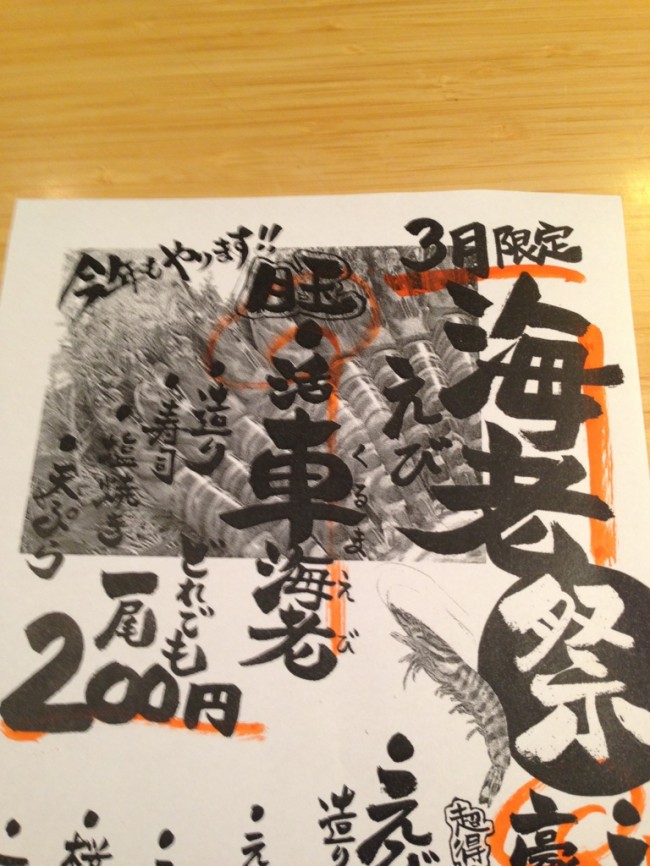 3月限定
海老祭
えび
今年もやります!!
旺
・活車海老
くるまえび
・造り
・寿司
・塩焼き
・天ぷら
どれでも
一尾
200円
・えび
造り
超得
・え
・桜